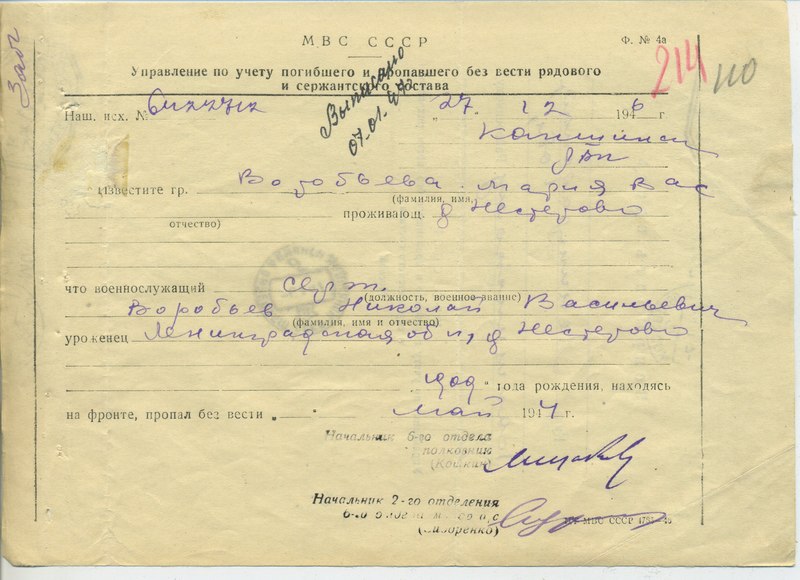 Заоч
МВС СССР
Ф. № 4а
214
110
Управление по учету погибшего и пропавшего без вести рядового
и сержантского состава
Выписано
07.01.47
Наш. исх. №
27. 12 1946 г
Капшинский
РВК
Известите гр. Воробьева Мария Вас
(фамилия, имя,
отчество)
проживающ. д Нестерово
что военнослужащий серж.
(должность, военное звание)
Воробьев Николай Васильевич
(фамилия, имя и отчество)
уроженец Ленинградская обл, д Нестерово
1909 года рождения, находясь
на фронте, пропал без вести май 1944 г.
Начальник 6-го отдела
полковник
Начальник 2-го отделения
6-го отдела
МВС СССР